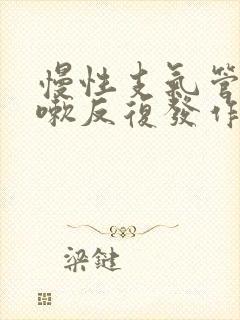 慢性支氣管
嗽反復發作
梁鍵